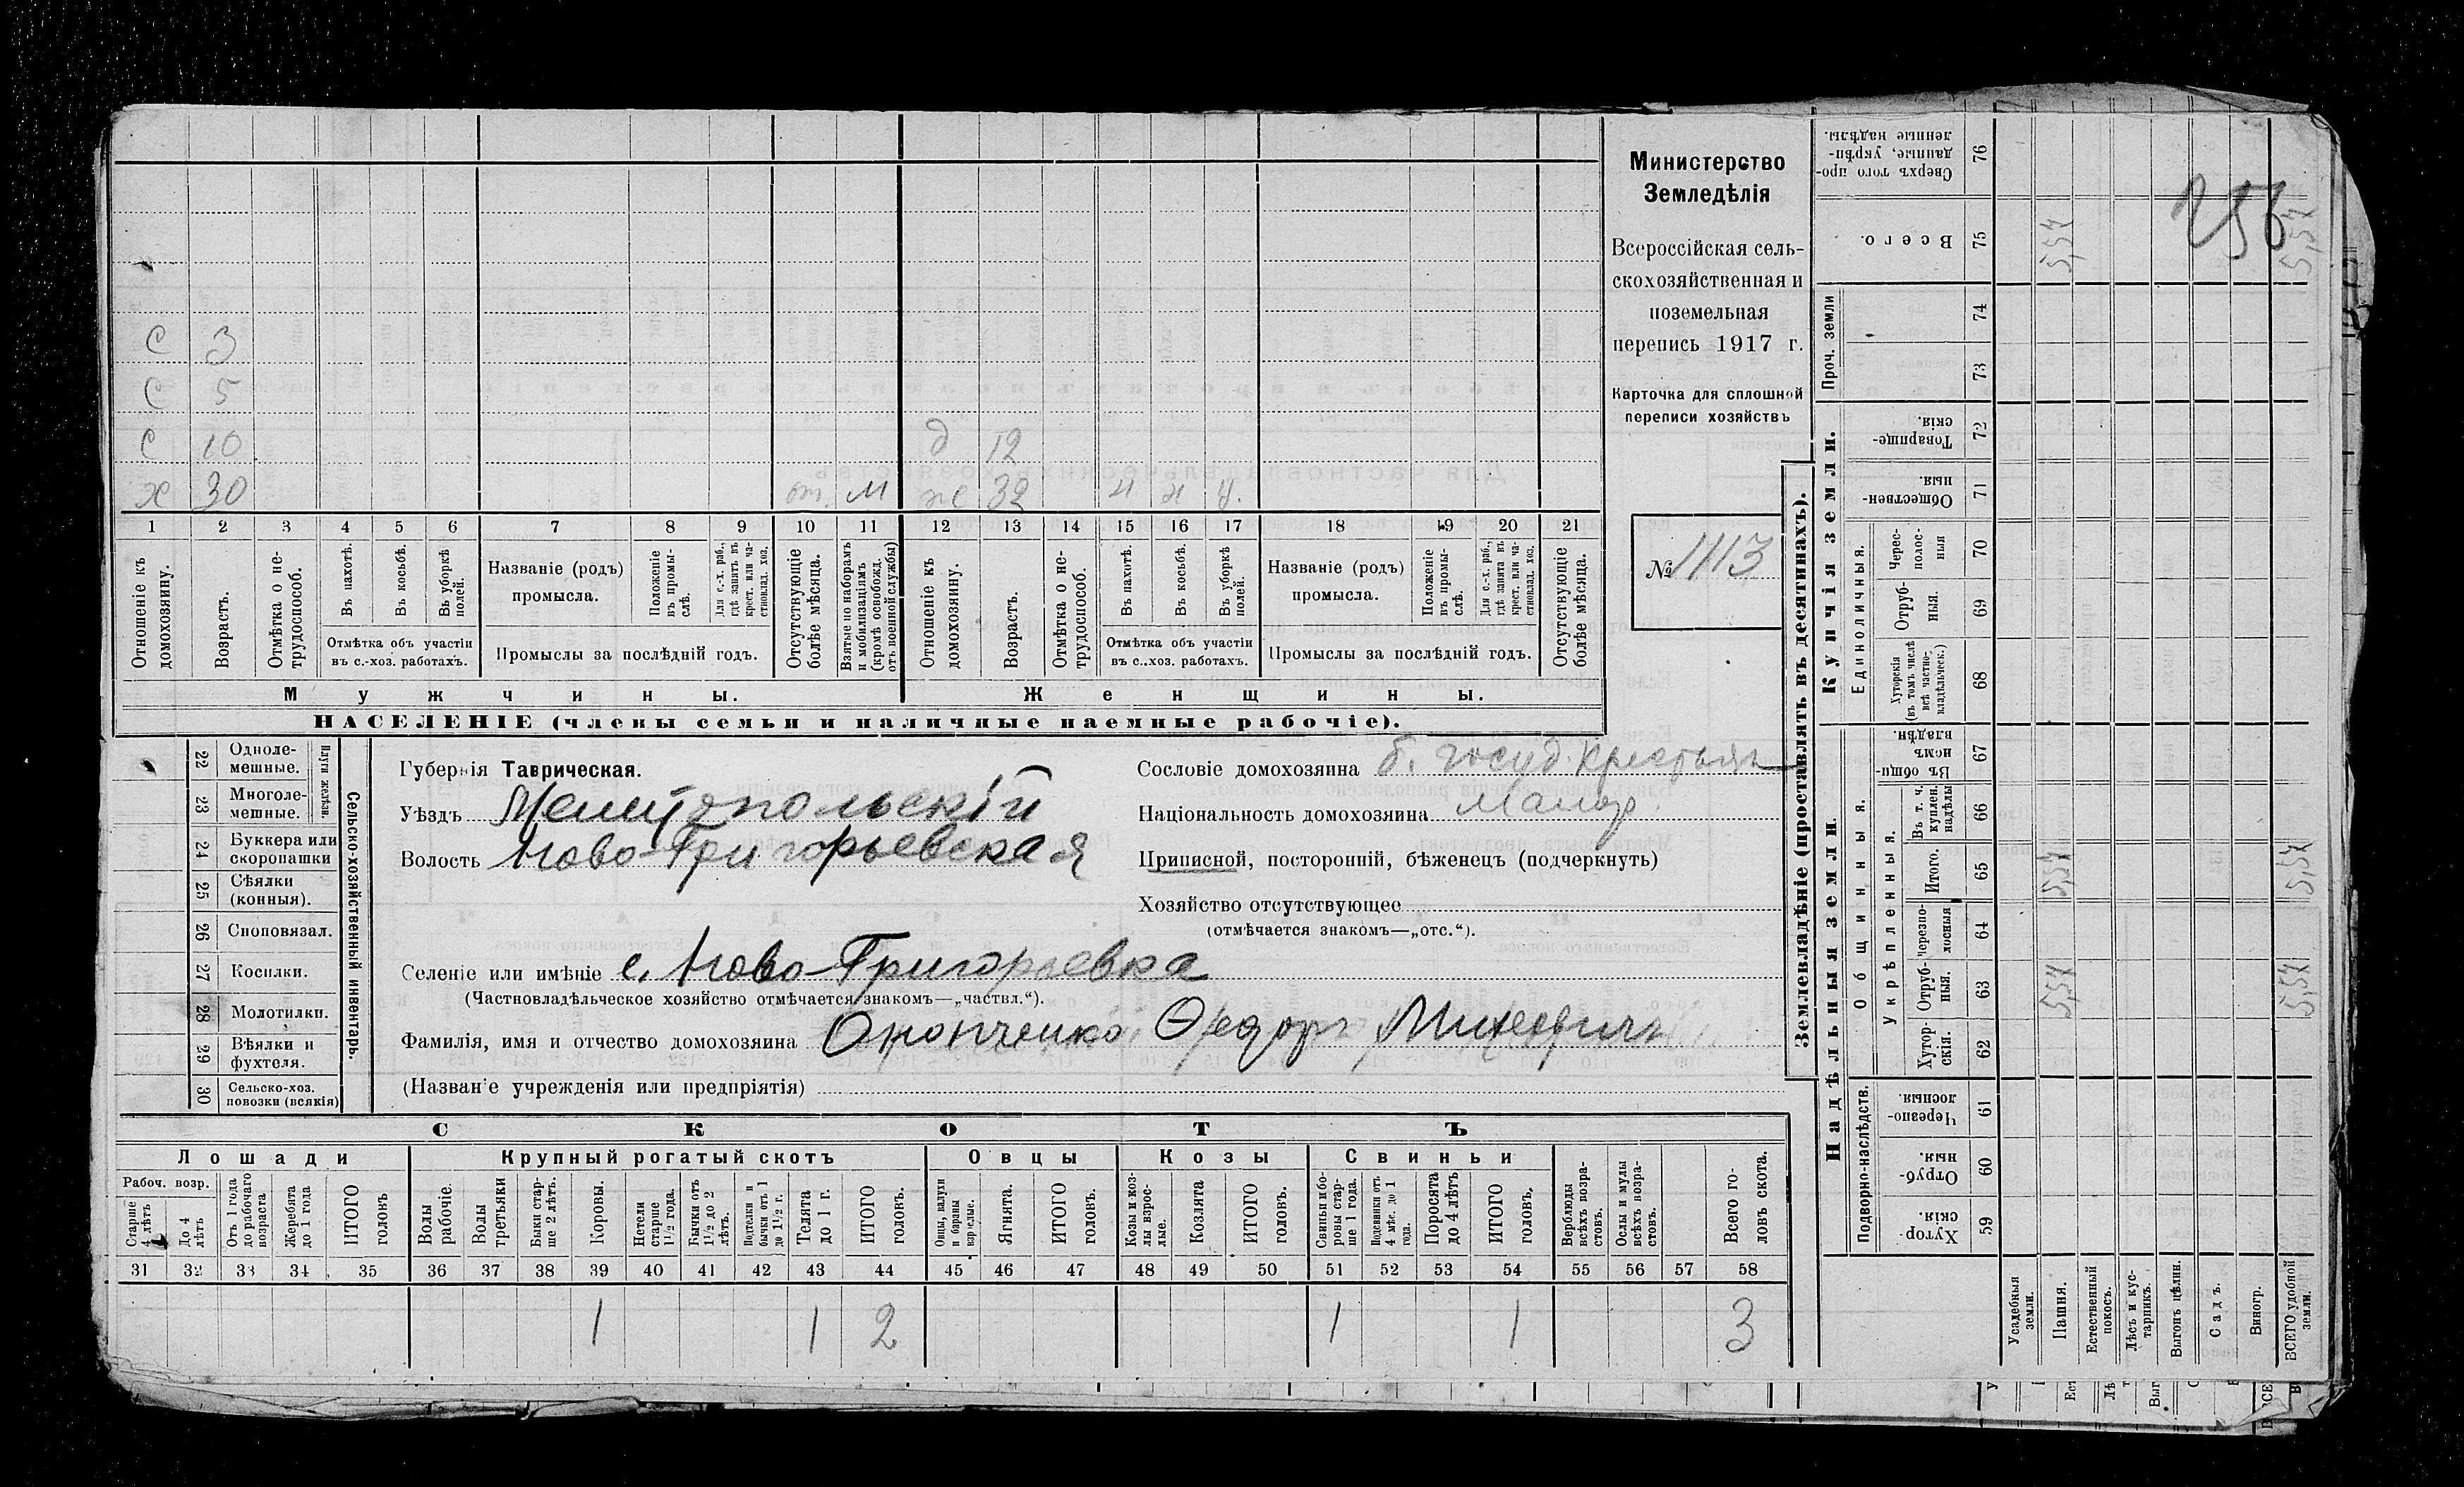 с 3
с 5
с 10 д 12
х 30 от. м ж 32 н н у.
1 2 3 4 5 6 7 8 9 10 11 12 13 14 15 16 17 18 19 20 21
Отношеніе къ домохозяину.
Возрастъ.
Отмѣтка о нетрудоспособ.
Въ пахотѣ.
Въ косьбѣ.
Въ уборкѣ полей.
Отмѣтка объ участіи
въ с.-хоз. работахъ.
Названіе (родъ)
промысла.
Положеніе въ промыслѣ.
Для с.-х. раб., гдѣ занятъ въ крест. или частновлад. хоз.
Промыслы за послѣдній годъ.
Отсутствующіе болѣе мѣсяца.
Взятые по наборамъ и мобилизаціямъ (кромѣ освобожд. отъ военной службы)
Отношеніе къ домохозяину.
Возрастъ.
Отмѣтка о нетрудоспособ.
Въ пахотѣ.
Въ косьбѣ.
Въ уборкѣ полей.
Отмѣтка объ участіи
въ с.-хоз. работахъ.
Названіе (родъ)
промысла.
Положеніе въ промыслѣ.
Для с.-х. раб., гдѣ занята въ крест. или частновлад. хоз.
Промыслы за послѣдній годъ.
Отсутствующіе болѣе мѣсяца.
Мужчины. Женщины.
НАСЕЛЕНІЕ (члены семьи и наличные наемные рабочіе).
Министерство
Земледѣлія
Всероссійская сель-
скохозяйственная и
поземельная
перепись 1917 г.
Карточка для сплошной
переписи хозяйствъ
№ 1413
22 Одноле-
мешные.
23 Многоле-
мешные.
Плуги желѣзн.
24 Буккера или
скоропашки
25 Сѣялки
(конныя).
26 Сноповязал.
27 Косилки.
28 Молотилки.
29 Вѣялки и
фухтеля.
30 Сельско-хоз.
повозки (всякія)
Сельско-хозяйственный инвентарь.
Губернія Таврическая.
Уѣздъ Мелитопольскій
Волость Ново-Григорьевская
Сословіе домохозяина б. госуд. крестьян
Національность домохозяина Малор
Приписной, посторонній, бѣженецъ (подчеркнуть)
Хозяйство отсутствующее
(отмѣчается знакомъ—„отс.“).
Селеніе или имѣніе с. Ново-Григорьевка
(Частновладѣльческое хозяйство отмѣчается знакомъ—„частвл.“).
Фамилія, имя и отчество домохозяина Ѳедоръ Михеевичъ
(Названіе учрежденія или предпріятія)
СКОТЪ
Лошади Крупный рогатый скотъ Овцы Козы Свиньи
Рабоч. возр.
Старше 4 лѣтъ
До 4 лѣтъ
Отъ 1 года до рабочаго возраста
Жеребята до 1 года
ИТОГО головъ
Волы рабочіе.
Волы третьяки
Быки старше 2 лѣтъ.
Коровы.
Нетели старше 1½ года.
Бычки отъ 1½ до 2 лѣтъ.
Подтелки и бычки отъ 1 до 1½ г.
Телята до 1 г.
ИТОГО головъ.
Овцы, валухи и бараны взрослые.
Ягнята.
ИТОГО головъ.
Козы и козлы взрослые.
Козлята
ИТОГО головъ.
Свиньи и боровы старше 1 года.
Подсвинки отъ 4 мѣс. до 1 года.
Поросята до 4 лѣтъ
ИТОГО головъ.
Верблюды всѣхъ возрастовъ.
Ослы и мулы всѣхъ возрастовъ.
Всего головъ скота.
31 32 33 34 35 36 37 38 39 40 41 42 43 44 45 46 47 48 49 50 51 52 53 54 55 56 57 58
1 1 2 1 1 3
Землевладѣніе (проставлять въ десятинахъ).
Купчія земли.
Проч. земли
Единоличныя.
Надѣльныя земли.
Общинныя.
Укрѣпленныя.
Подворно-наслѣдств.
Сверхъ того проданные, укрѣпленные надѣлы. 76
Всего. 75 5,54 5,54
74
73
Товарищескія. 72
Общественныя. 71
Чересполосныя 70
Отрубныя. 69
Хуторскія (въ томъ числѣ всѣ частновладѣльческ.) 68
Въ общинномъ владѣн. 67
Въ т. ч. куплен. надѣлы 66
Итого. 65 5,54 5,54
Черезполосныя 64
Отрубныя. 63 5,54 5,54
Хуторскія. 62
Черезполосныя 61
Отрубныя. 60
Хуторскія. 59
Усадебныя земли.
Пашня.
Естественный покосъ.
Лѣсъ и кустарникъ.
Выгонъ цѣлин.
Садъ.
Виногр.
ВСЕГО удобной земли.
256